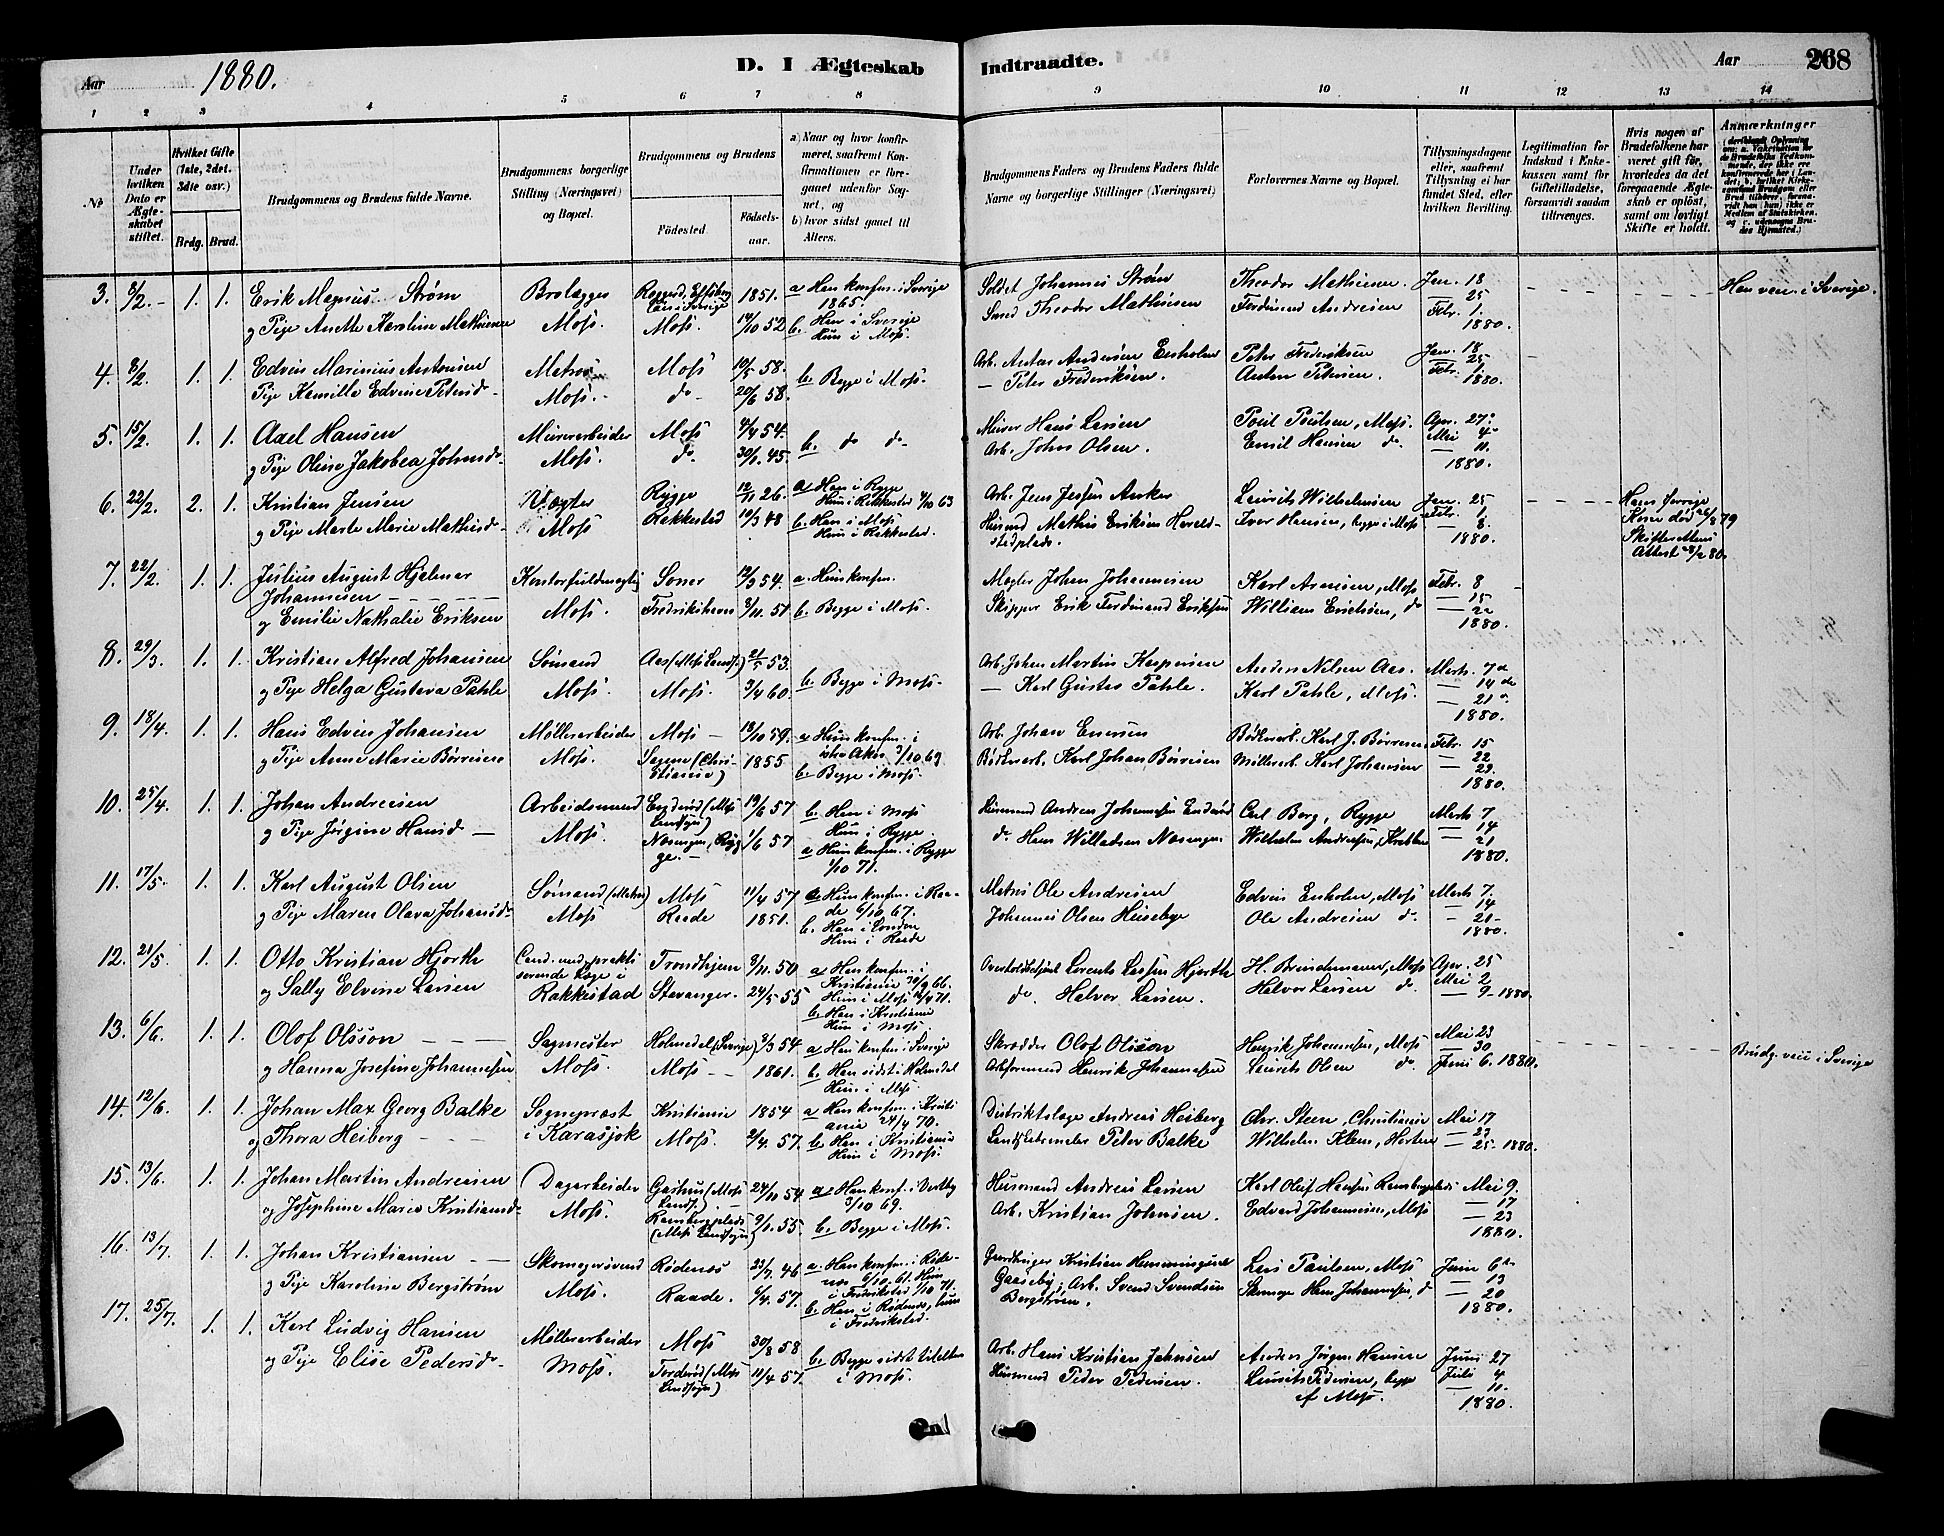 Aar 1880.
D. I Ægteskab Indtraadte.
Aar 268
1 2 3 4 5 6 7 8 9 10 11 12 13 14
No
Under hvilken Dato er Ægteskabet stiftet.
Hvilket Gifte (1ste, 2det. 3dte osv.)
Brdg. Brud.
Brudgommens og Brudens fulde Navne.
Brudgommens borgerlige Stilling (Næringsvei) og Bopæl.
Brudgommens og Brudens
Fødested. Fødselsaar.
a) Naar og hvor konfirmeret, saafremt Konfirmationen er foregaaet udenfor Sognet, og
b) hvor sidst gaaet til Alters.
Brudgommens Faders og Brudens Faders fulde Navne og borgerlige Stillinger (Næringsvei)
Forlovernes Navne og Bopæl.
Tillysningsdagene eller, saafremt Tillysning ei har fundet Sted, efter hvilken Bevilling.
Legitimation for Indskud i Enkekassen samt for Giftetilladelse, forsaavidt saadan tiltrænges.
Hvis nogen af Brudefolkene har været gift før, hvorledes da det foregaaende Ægteskab er opløst, samt om lovligt Skifte er holdt.
Anmærkninger
3. 8/2. 1. 1. Erik Magnus Strøm Brolægger 1851. a Han konfm. i Sverige 1865. Soldat Johannes Strøm Theodor Mathiesen Jan. 18 Han veu. i Sverige.
og Pige Anette Karoline Mathiesen Moss. Moss. 14/10 52 b. Han i Sverige Hun i Moss. Smed Theodor Mathiesen Ferdinand Andreisen — 25 Febr. 1. 1880.
4. 8/2. 1. 1. Edvin Marinius Antonsen Matros Moss 10/5 58. b. Begge i Moss. Arb. Anton Andersen Enholm Peter Frederiksen Jan. 18
Pige Kamilla Edvine Petersd. Moss. do 20/6 58. — Peter Frederiksen. Anton Petersen. — 25 Febr. 1. 1880.
5. 15/2. 1. 1. Axel Hansen Murerarbeider Moss 4/4 54. b. do do Murer Hans Larsen Poul Poulsen, Moss. Apr. 27
og Pige Oline Jakobea Johnsd. Moss. do. 30/1. 45. Arb. John Olsen. Emil Hansen do Mai 4 — 11. 1880.
6. 22/2. 2. 1. Kristian Jensen Vægter Rygge 12/11 26. a. Han i Rygge Hun i Rakkestad 4/10 63 Arb. Jens Jensen Anker Laurits Wilhelmsen Jan. 25 Hans forrige Kone død 26/8 79
og Pige Marte Marie Mathisd. Moss Rakkestad 10/3 48 b. Han i Moss. Hun i Rakkestad. Husmd Mathis Eriksen Iver Hansen, begge i Moss Febr. 1 — 8. 1880. Skifterettens Attest 28/2 80.
7. 22/2. 1. 1. Julius August Hjelmar Johannesen Kontorfuldmægtig Soner 12/9 54. a. Hun konfm. Mægler Johan Johannesen Karl Arnesen, Moss Febr. 8
og Emilie Nathalie Eriksen Moss. Fredrikshavn 3/11. 51 b. Begge i Moss. Skipper Erik Ferdinand Eriksen William Erichsen, do — 15 — 22 1880.
8. 29/3. 1. 1. Kristian Alfred Johansen Sømand Aas (Moss Landss.) 21/5 53. b. Begge i Moss. Arb. Johan Martin Kaspersen Anders Nilsen Aas. Marts. 7de
og Pige Helga Gustava Pahle Moss. Moss. 3/4 60. — Karl Gustav Pahle. Karl Pahle, Moss. — 14de — 21 1880.
9. 18/4. 1. 1. Hans Edvin Johansen Møllerarbeider Moss — 13/10 59. a Hun konfm. i østre Aker 3/10 69. Arb. Johan Enersen Bødkerarb. Karl J. Børresen Febr. 15
og Pige Anne Marie Børresen Moss. Sagene (Christiania) 1855 b. Begge i Moss. Bødkerarb. Karl Johan Børresen Møllerarb. Karl Johansen — 22 — 29. 1880.
10. 25/4. 1. 1. Johan Andreisen Arbeidsmand (Moss Landsogn) 19/6 57 b. Han i Moss Hun i Rygge. Husmand Andreas Johannesen Carl Berg, Rygge Marts 7
og Pige Jørgine Hansd. — Moss. Næsengen, Rygge. 1/6 57 a Hun konfm. i Rygge 1/10 71. do. Hans Willadsen Næsengen Wilhelm Andreisen — 14 — 21 1880.
11. 17/5. 1. 1. Karl August Olsen Sømand (Matros) Moss 11/4 57 a. Hun konfm. i Raade 6/10 67. Matros Ole Andreisen Edvin Enholm, Moss Marts 7.
og Pige Maren Olava Johansd. Moss Raade 1851. b. Han i London Hun i Raade Johannes Olsen Huseby Ole Andreisen do. — 14 — 21 1880.
12. 21/5. 1. 1. Otto Kristian Hjorth Cand. med. praktiserende Læge i Trondhjem 3/11. 50 a Han konfm. i Kristiania 30/9 66. Overtoldbetjent Lorents Hjorth H. Brindemann, Moss Apr. 25
og Sally Elvine Larsen Rakkestad Stavanger. 24/5 55 Hun i Moss 71. b. Han i Kristiania Hun i Moss. do. Halvor Larsen. Halvor Larsen do. Mai 2 — 9 1880.
13. 6/6. 1. 1. Olof Olsson Sagmester Holmedal (Sverige) 3/3 54 a Han konfm. i Sverige Skrædder Olof Olsson Henrik Johannesen, Moss Mai 23 Brudg. veu i Sverige
og Hanna Josefine Johannesen Moss. Moss — 1861. b. Han sidst i Holmedal Hun i Moss Arbformand Henrik Johannesen Laurits Olsen do. — 30 Juni 6. 1880.
14. 12/6. 1. 1. Johan Max Georg Balke Sognepræst Kristiania 1854 a Han konfm. i Kristiania 24/4 70. Distriktslæge Andreas Heiberg Chr. Steen, Christiania Mai 17
og Thora Heiberg i Karasjok Moss. 2/4. 57. b. Han i Kristiania Hun i Moss. Landskabsmaler Peter Balke Wilhelm Klem, Horten — 23 — 25. 1880.
15. 13/6. 1. 1. Johan Martin Andreisen Dagarbeider Gashus (Moss Lands.) 24/11 54 a Han konf. i Vestby 3/10 69. Husmand Andreas Larsen Karl Oluf Hansen Ramsbergplads Mai 9.
og Josephine Marie Kristiansd. Moss. Ramsbergplads (Moss Landsogn) 9/1. 55. b. Begge i Moss. Arb. Kristian Johnsen. Edvard Johannesen, Moss — 17 — 23 1880.
16. 13/7. 1. 1. Johan Kristiansen Skomagersvend Rødenæs 23/7. 46 a. Han konfm. i Rødenæs 6/10. 61. Hun i Fredrikstad 1/10 71. Gaardbruger Kristian Hemmingsen Gaaseby; Arb. Svend Svendsen Bergstrøm. Lars Paulsen, Moss Juni 6te
og Pige Karoline Bergstrøm Moss. Raade. 5/4. 57. b. Han i Rødenæs, hun i Fredrikstad. Skomager Hans Johannesen, do — 13 — 20 1880.
17. 25/7. 1. 1. Karl Ludvig Hansen Møllerarbeider Moss 30/8 58 b. Begge sidst til alters i Moss. Arb. Hans Kristian Johnsen Anders Jørgen Hansen Juni 27
og Pige Elise Pedersd. Moss. Torderød (Moss Landsogn) 11/4 57. Husmand Peder Pedersen. Laurits Pedersen, begge af Moss. Juli 4 — 11. 1880.